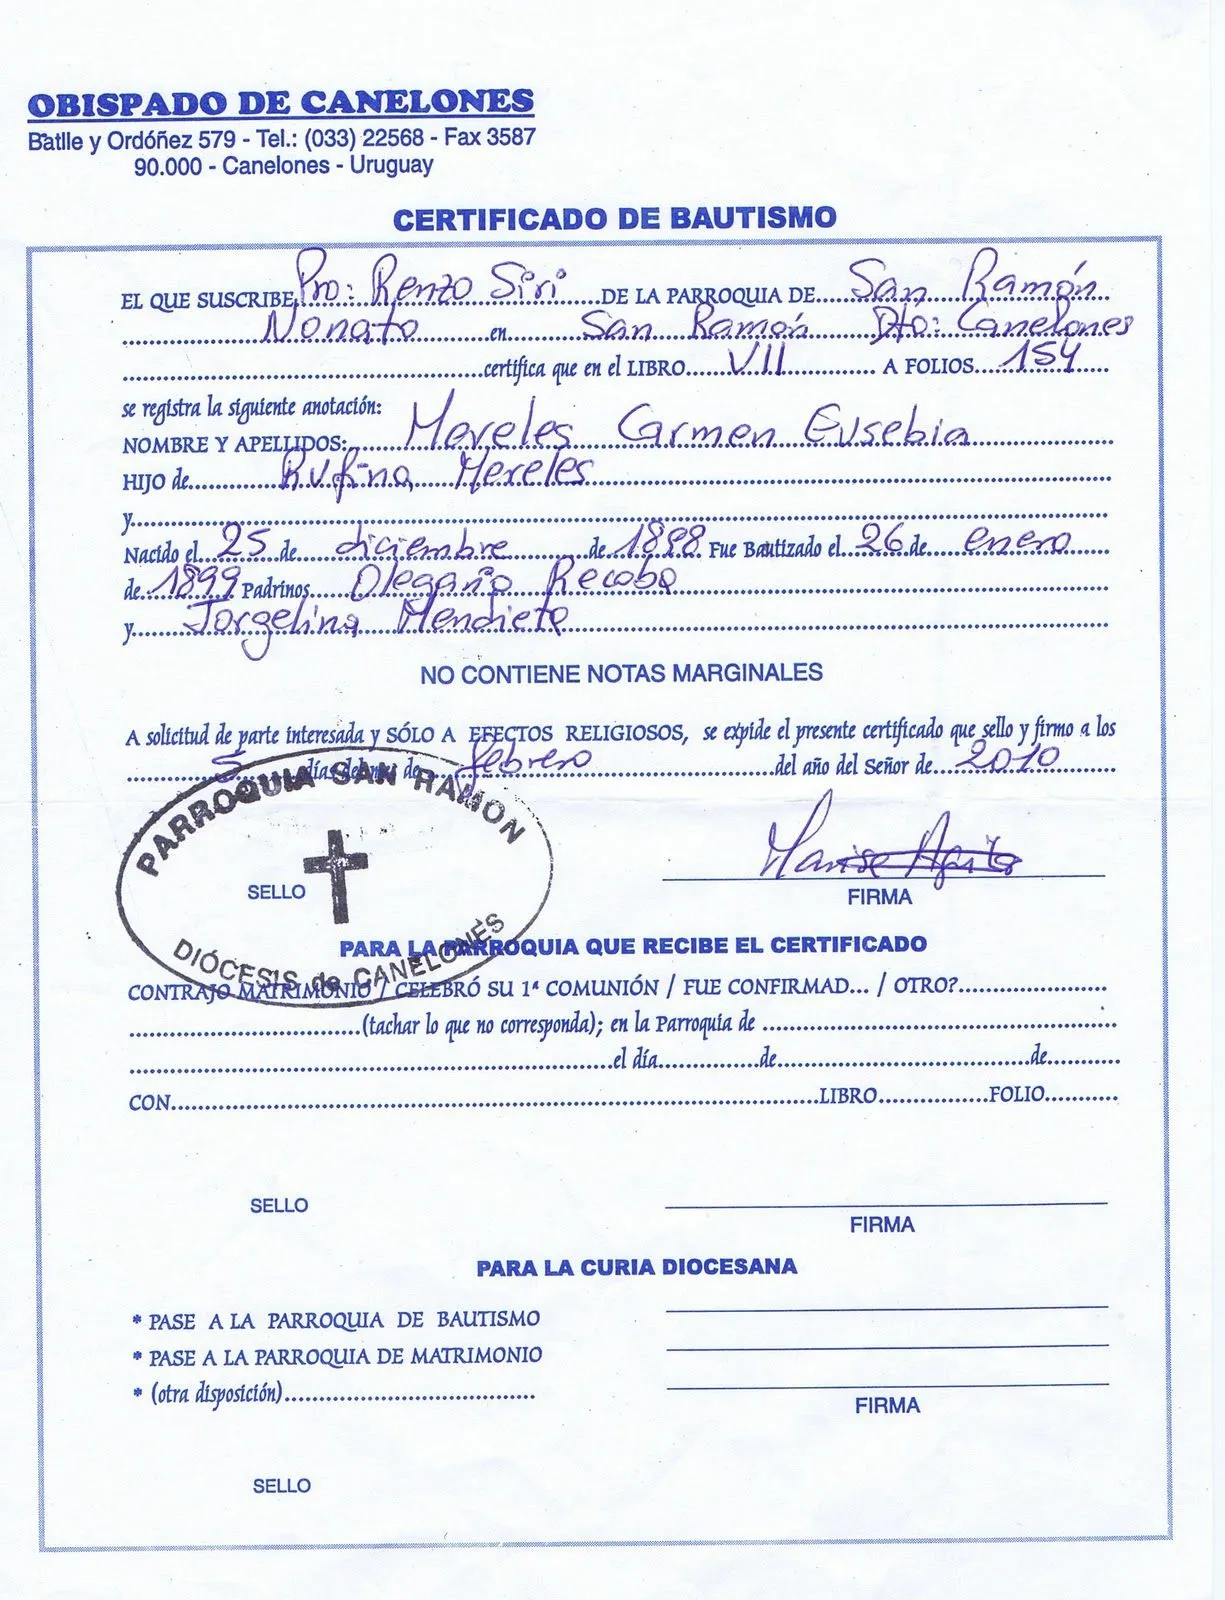 OBISPADO DE CANELONES
Batlle y Ordóñez 579 - Tel.: (033) 22568 - Fax 3587
90.000 - Canelones - Uruguay
CERTIFICADO DE BAUTISMO
EL QUE SUSCRIBE Pro: Renzo Siri DE LA PARROQUIA DE San Ramón
Nonato en San Ramón Dto: Canelones
certifica que en el LIBRO VII A FOLIOS 154
se registra la siguiente anotación:
NOMBRE Y APELLIDOS: Mereles Carmen Eusebia
HIJO de Rufina Mereles
y
Nacido el 25 de diciembre de 1898 Fue Bautizado el 26 de enero
de 1899 Padrinos Olegario Recoba
y Jorgelina Mendieta
NO CONTIENE NOTAS MARGINALES
A solicitud de parte interesada y SÓLO A EFECTOS RELIGIOSOS, se expide el presente certificado que sello y firmo a los
5 días del mes de febrero del año del Señor de 2010
PARROQUIA SAN RAMON
SELLO
FIRMA
DIÓCESIS de CANELONES
PARA LA PARROQUIA QUE RECIBE EL CERTIFICADO
CONTRAJO MATRIMONIO / CELEBRÓ SU 1ª COMUNIÓN / FUE CONFIRMAD... / OTRO?
(tachar lo que no corresponda); en la Parroquia de
el día de de
CON LIBRO FOLIO
SELLO
FIRMA
PARA LA CURIA DIOCESANA
* PASE A LA PARROQUIA DE BAUTISMO
* PASE A LA PARROQUIA DE MATRIMONIO
* (otra disposición)
FIRMA
SELLO